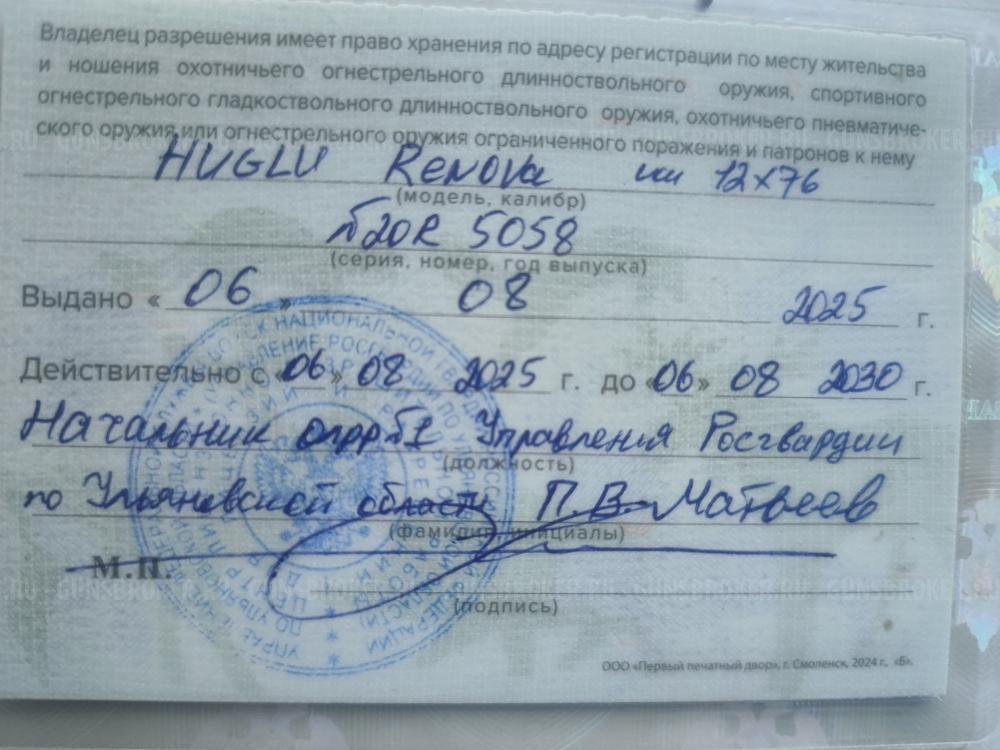 Владелец разрешения имеет право хранения по адресу регистрации по месту жительства
и ношения охотничьего огнестрельного длинноствольного оружия, спортивного
огнестрельного гладкоствольного длинноствольного оружия, охотничьего пневматиче-
ского оружия или огнестрельного оружия ограниченного поражения и патронов к нему
HUGLU Renova 12х76
(модель, калибр)
5058
(серия, номер, год выпуска)
Выдано « 06 » 08 2025 г.
Действительно с «06» 08 2025 г. до «06» 08 2030 г.
Начальник Управления Росгвардии
(должность)
по Ульяновской области П.В. Матвеев
(фамилия, инициалы)
М.П.
(подпись)
ООО «Первый печатный двор», г. Смоленск, 2024 г., «Б».
GUNSBROKER.RU